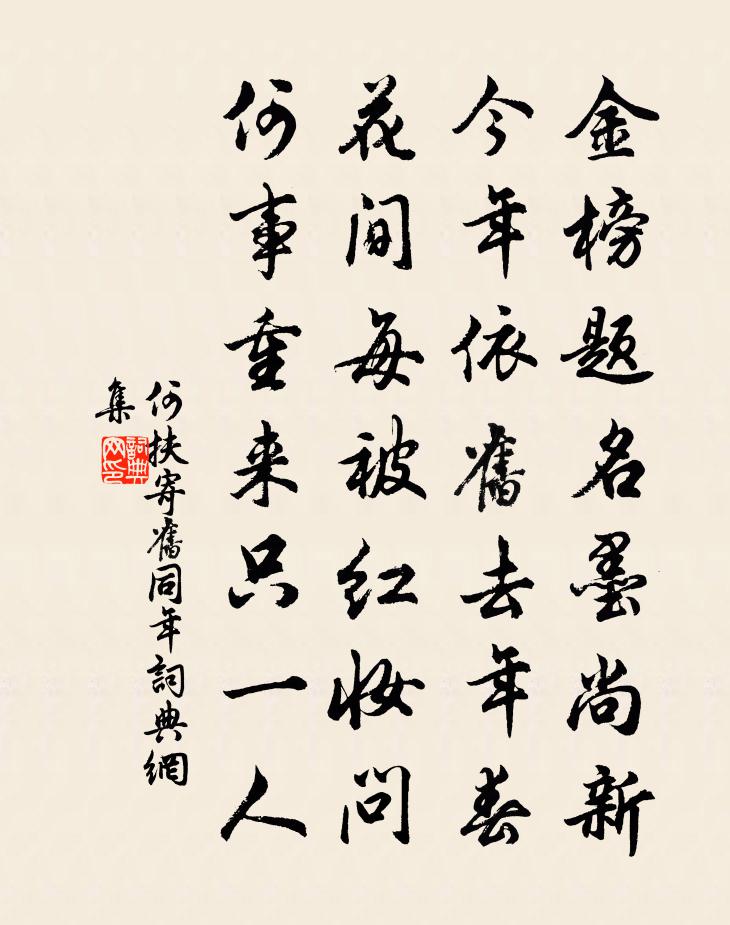 金榜题名墨尚新
今年依舊去年春
花间每被红妆问
何事重来只一人
何扶寄舊同年詞典網
集
詞典
网印